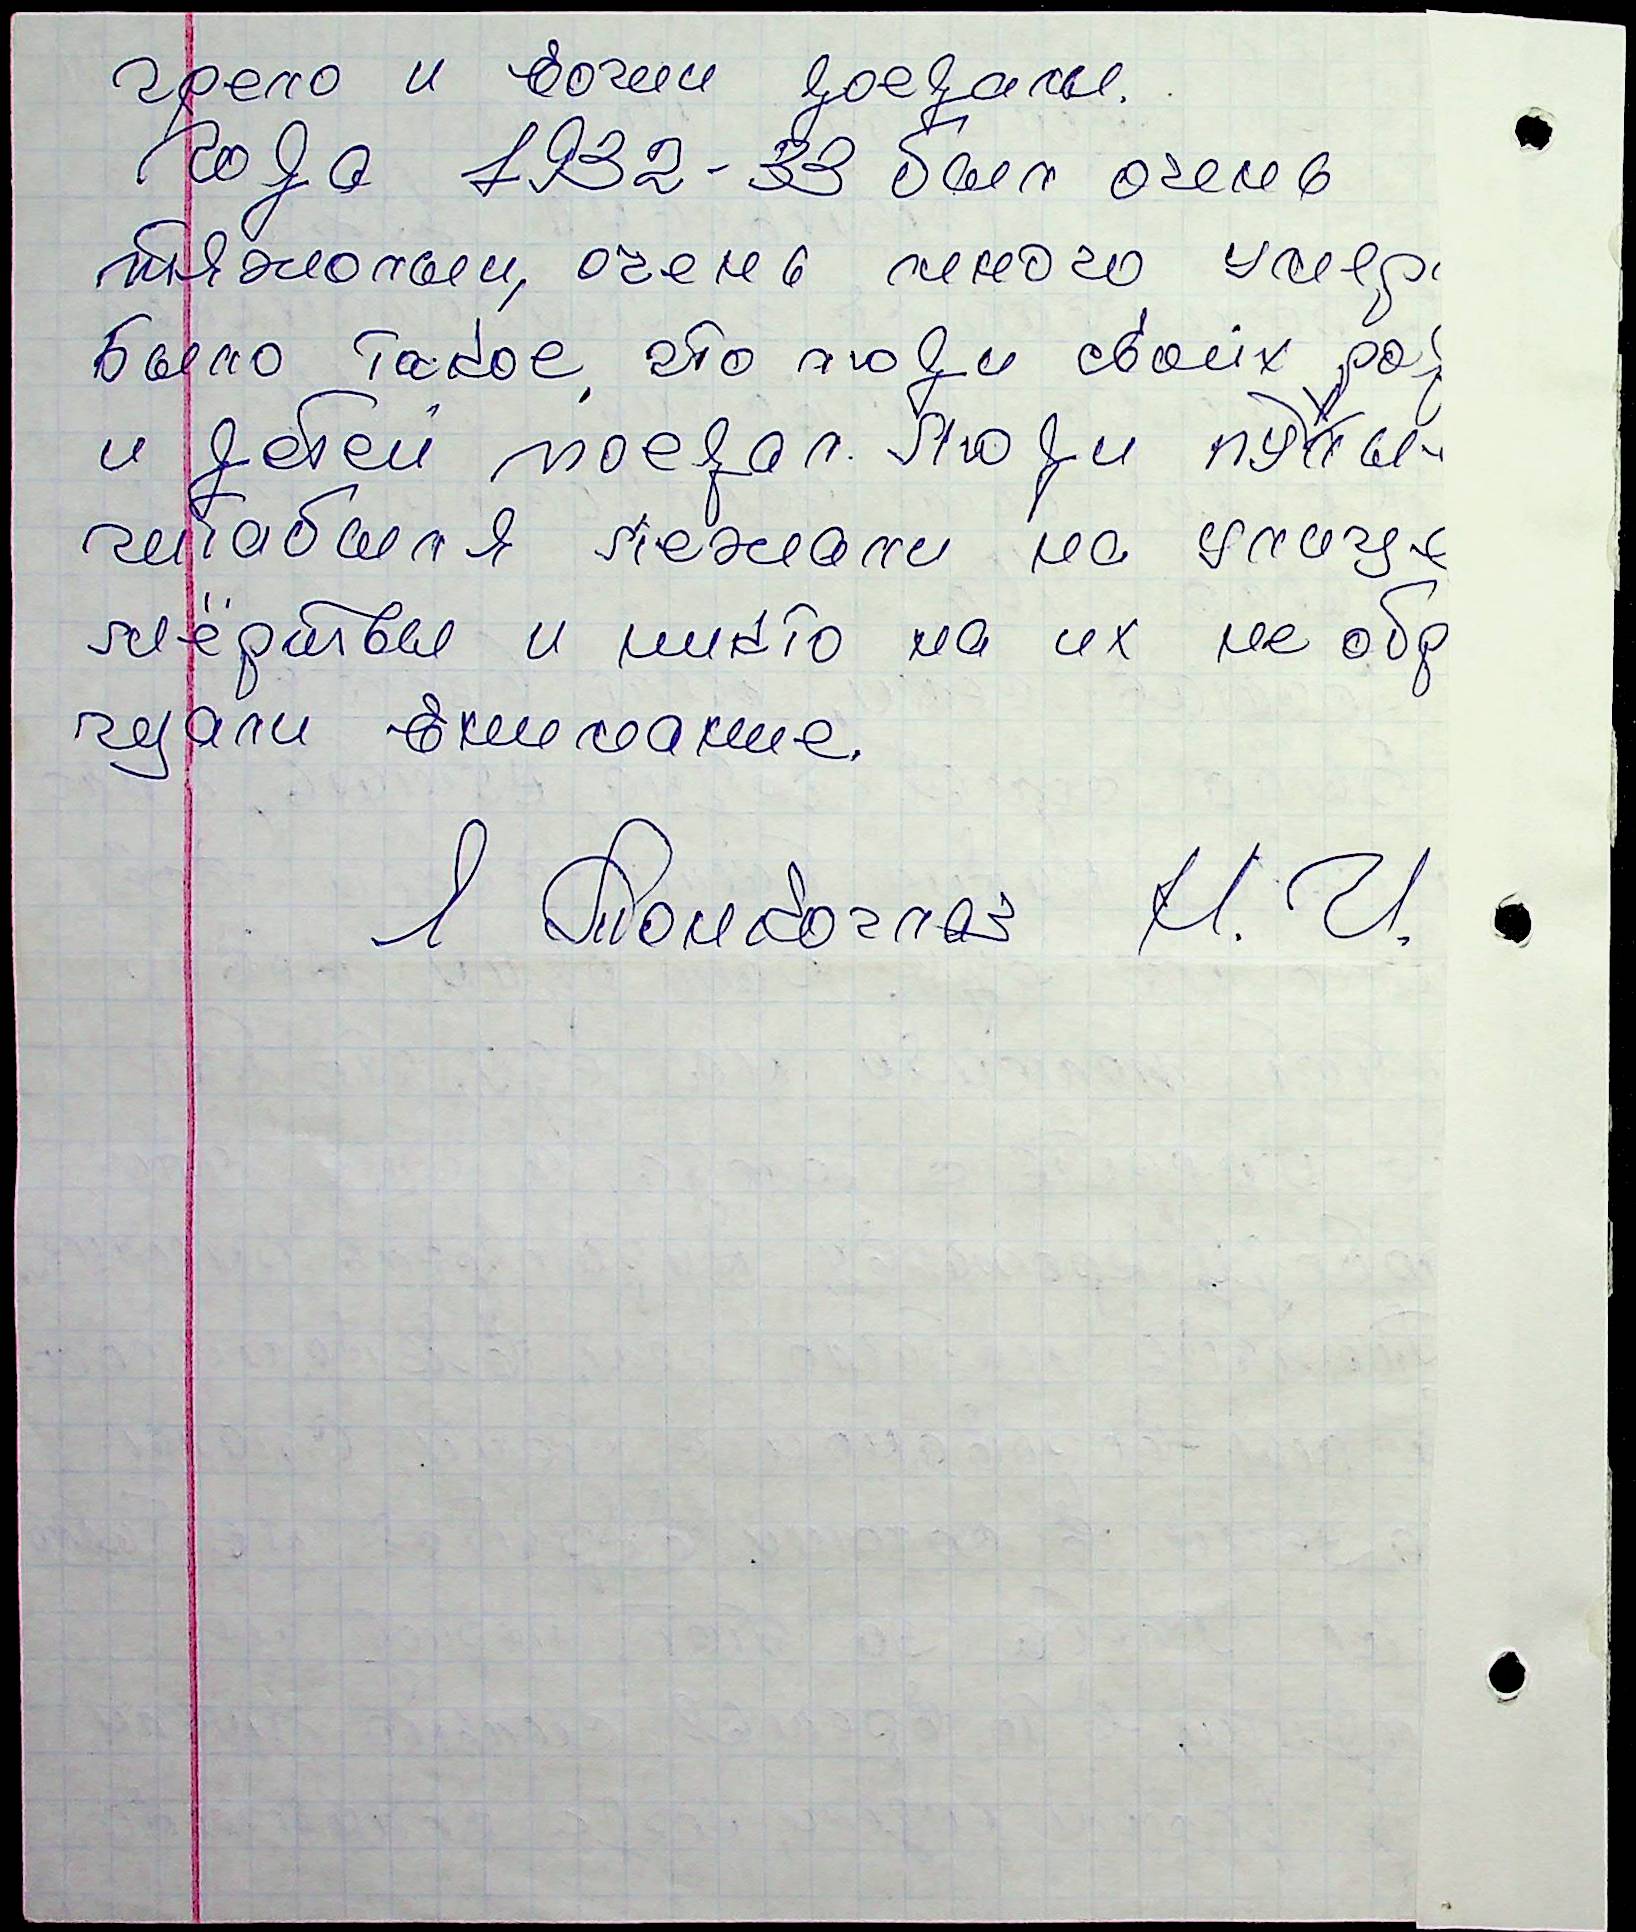 грело и вочии доедали.
Года 1932-33 был очень
тяжолыи, очень много умер
было такое, что люди своих род
и детей поедал. Люди пухлы
читабыля лежали на улицу
мёрствы и никто на их не обр
щали внимание.
Я Тонкоглаз Н. И.